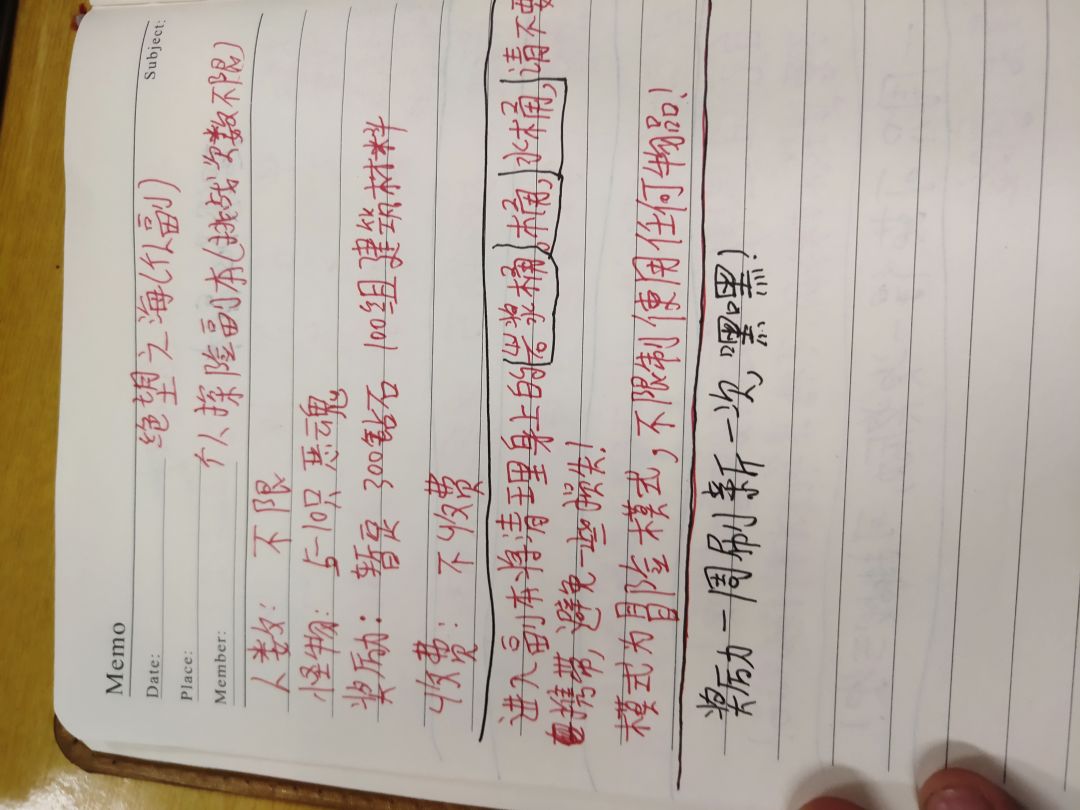 Memo
Subject:
Date:
绝望之海(个副)
Place:
个人探险副本(挑战次数不限)
Member:
人数: 不限
怪物: 5-10只 恶魂
奖励: 暂定 300钻石 100组建筑材料
收费: 不收费
进入副本将清理身上的岩浆桶,桶,水桶,请不要
携带,避免一些损失!
模式为冒险模式,不限制使用任何物品!
奖励一周刷新一次,嘿嘿!